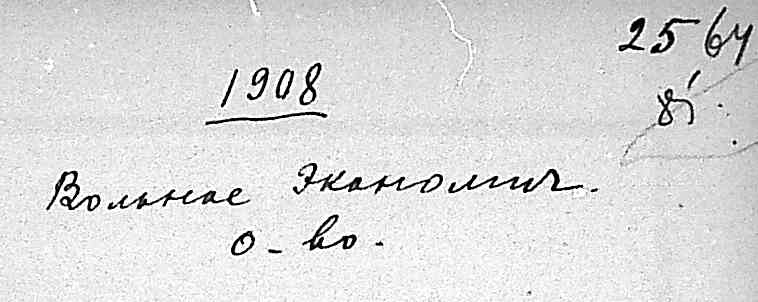 2564
1908
Вольное Экономич.
о-во.